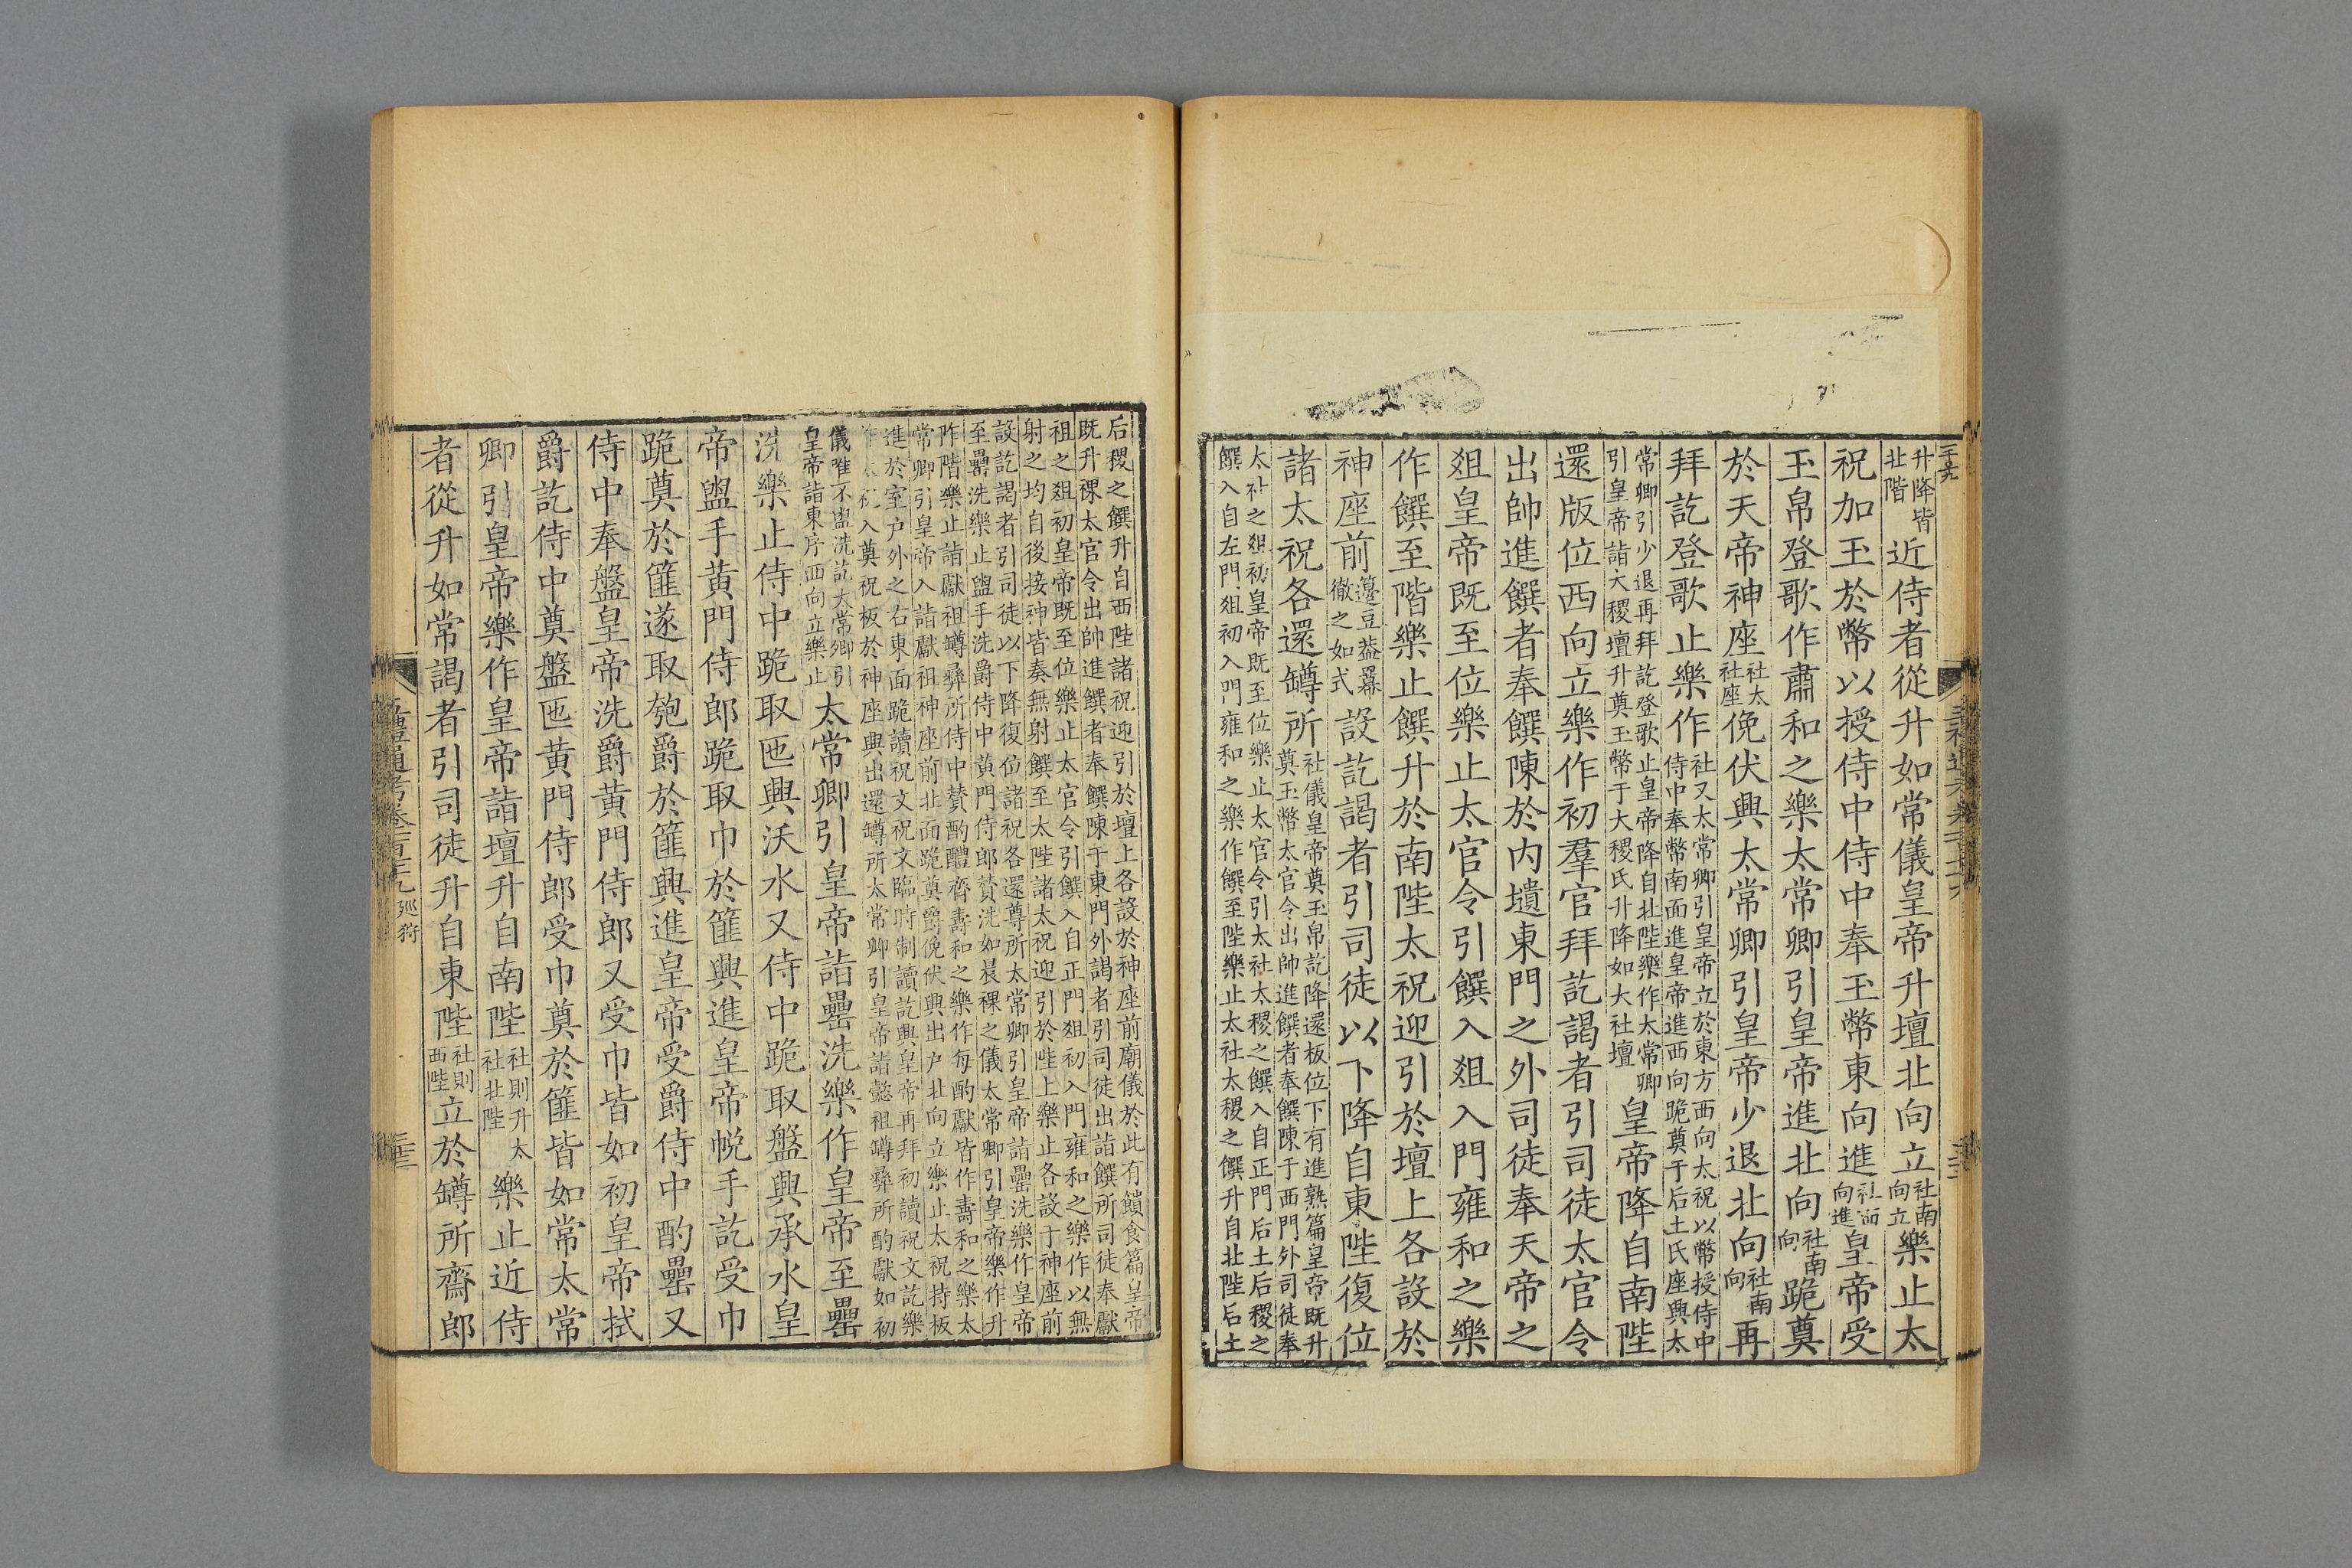 升降皆北階近侍者從升如常儀皇帝升壇北向立社南向立樂止太
祝加玉於幣以授侍中侍中奉玉幣東向進社西向進皇帝受
玉帛登歌作肅和之樂太常卿引皇帝進北向社南向跪奠
於天帝神座社太社座俛伏興太常卿引皇帝少退北向社南向再
拜訖登歌止樂作社又太常卿引皇帝立於東方西向太祝以幣授侍中侍中奉幣南面進皇帝進西向跪奠于后土氏座興太
常卿引少退再拜訖登歌止皇帝降自北陛樂作太常卿引皇帝詣大稷壇升奠玉幣于大稷氏升降如大社壇皇帝降自南陛
還版位西向立樂作初羣官拜訖謁者引司徒太官令
出帥進饌者奉饌陳於内壝東門之外司徒奉天帝之
俎皇帝既至位樂止太官令引饌入俎入門雍和之樂
作饌至階樂止饌升於南陛太祝迎引於壇上各設於
神座前籩豆蓋羃徹之如式設訖謁者引司徒以下降自東陛復位
諸太祝各還罇所社儀皇帝奠玉帛訖降還板位下有進熟篇皇帝既升奠玉幣太官令出帥進饌者奉饌陳于西門外司徒奉
太社之俎初皇帝既至位樂止太官令引太社太稷之饌入自正門后土后稷之
饌入自左門俎初入門雍和之樂作饌至陛樂止太社太稷之饌升自北陛后土
后稷之饌升自西陛諸祝迎引於壇上各設於神座前廟儀於此有饋食篇皇帝
既升祼太官令出帥進饌者奉饌陳于東門外謁者引司徒出詣饌所司徒奉獻
祖之俎初皇帝既至位樂止太官令引饌入自正門俎初入門雍和之樂作以無
射之均自後接神皆奏無射饌至太陛諸太祝迎引於陛上樂止各設于神座前
設訖謁者引司徒以下降復位諸祝各還尊所太常卿引皇帝詣罍洗樂作皇帝
至罍洗樂止盥手洗爵侍中黄門侍郎贊洗如晨祼之儀太常卿引皇帝樂作升
阼階樂止詣獻祖罇彝所侍中贊酌醴齊壽和之樂作每酌獻皆作壽和之樂太
常卿引皇帝入詣獻祖神座前北面跪奠爵俛伏興出户北向立樂止太祝持板
進於室户外之右東面跪讀祝文祝文臨時制讀訖興皇帝再拜初讀祝文訖樂
入奠祝板於神座興出還罇所太常卿引皇帝詣懿祖罇彝所酌獻如初
儀唯不盥洗訖太常卿引皇帝詣東序西向立樂止太常卿引皇帝詣罍洗樂作皇帝至罍
洗樂止侍中跪取匜興沃水又侍中跪取盤興承水皇
帝盥手黄門侍郎跪取巾於篚興進皇帝帨手訖受巾
跪奠於篚遂取匏爵於篚興進皇帝受爵侍中酌罍又
侍中奉盤皇帝洗爵黄門侍郎又受巾皆如初皇帝拭
爵訖侍中奠盤匜黄門侍郎受巾奠於篚皆如常太常
卿引皇帝樂作皇帝詣壇升自南陛社則升太社北陛樂止近侍
者從升如常謁者引司徒升自東陛社則西陛立於罇所齋郎
五禮通考卷一百七十九 巡狩